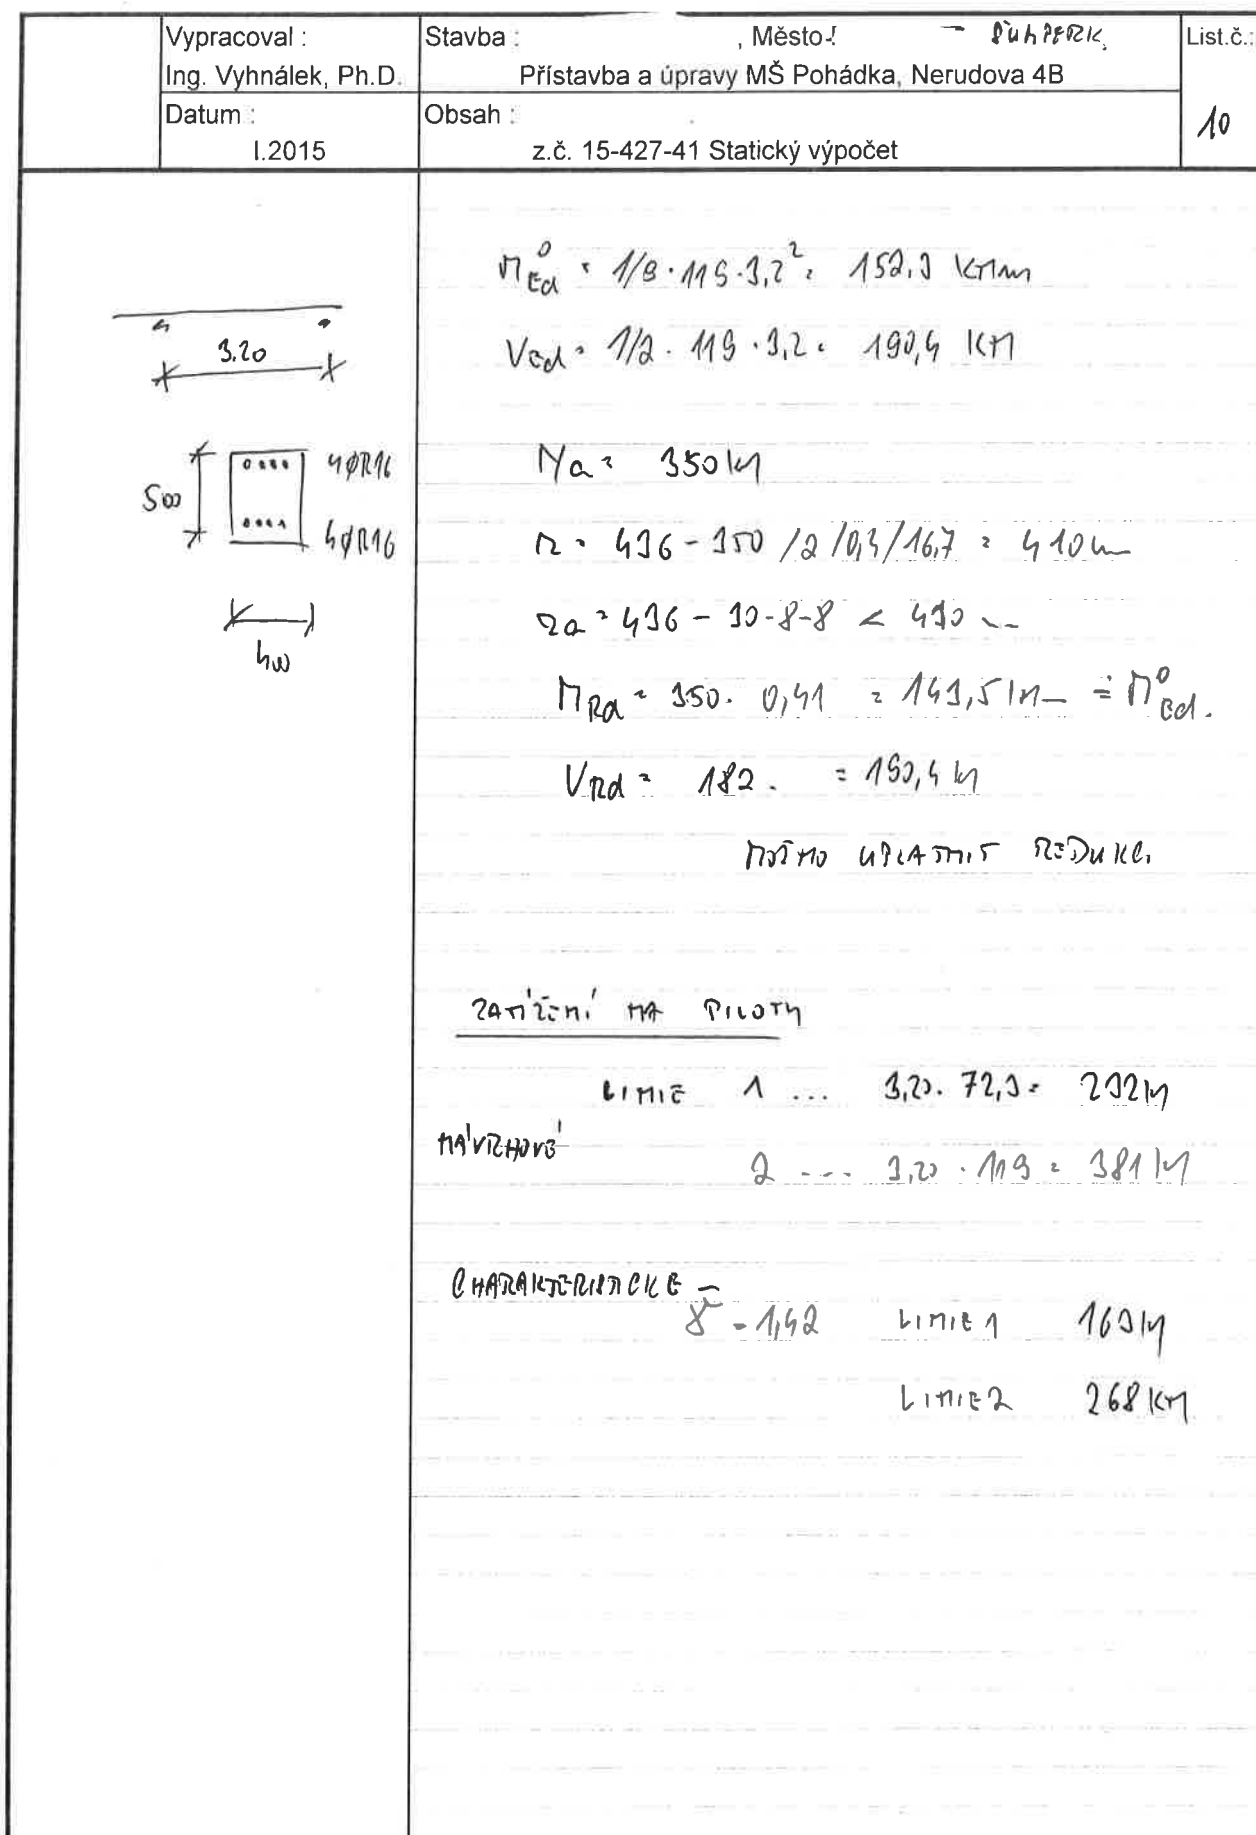 Vypracoval :
Ing. Vyhnálek, Ph.D.
Datum :
I.2015
Stavba : , Město - ŠUMPERK
Přístavba a úpravy MŠ Pohádka, Nerudova 4B
Obsah :
z.č. 15-427-41 Statický výpočet
List.č.:
10
M°Ed = 1/8 · 119 · 3,2² = 152,3 kNm
VEd = 1/2 · 119 · 3,2 = 190,4 kN
3.20
500
4øR16
4øR16
400
Na = 350 kN
r = 436 - 350 /2 /0,4/16,7 = 410
ra = 436 - 30-8-8 < 430
MRd = 350 · 0,41 = 143,5 kNm ≐ M°Ed.
VRd = 182 . = 190,4 kN
MOŽNO UPLATNIT REDUKCI
ZATÍŽENÍ NA PILOTY
NÁVRHOVÉ
LINIE 1 ... 3,20 · 72,3 = 232 kN
2 ... 3,20 · 119 = 381 kN
CHARAKTERISTICKÉ -
γ = 1,42 LINIE 1 163 kN
LINIE 2 268 kN